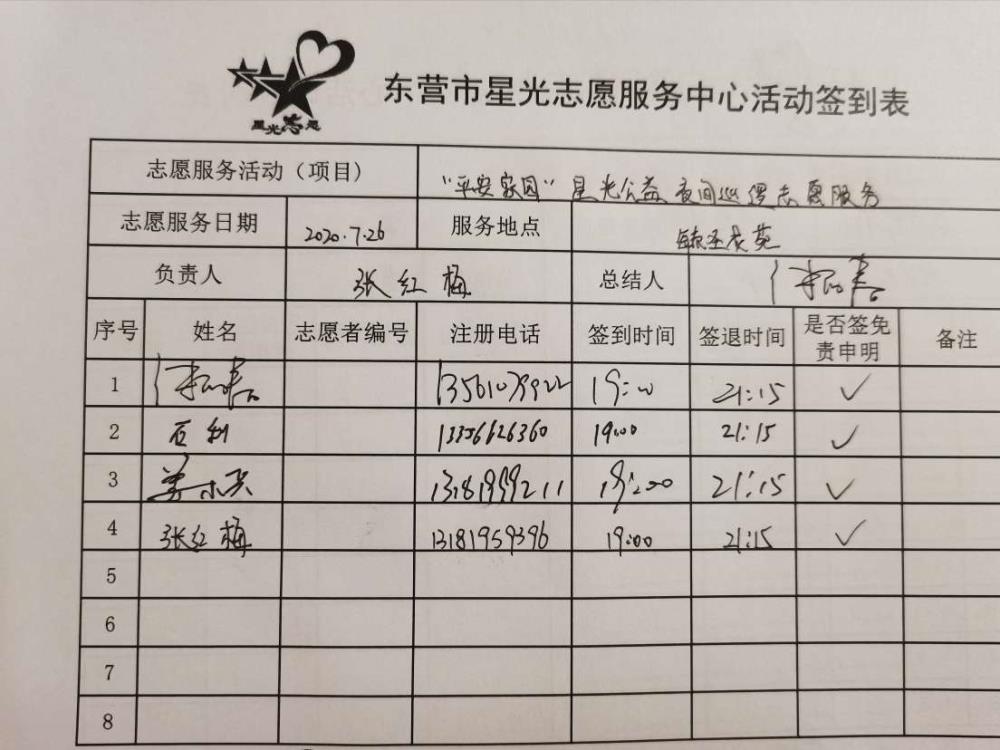 星光志愿
东营市星光志愿服务中心活动签到表
志愿服务活动（项目） “平安家园”星光公益夜间巡逻志愿服务
志愿服务日期 2020.7.26 服务地点
负责人 张红梅 总结人
序号 姓名 志愿者编号 注册电话 签到时间 签退时间 是否签免责申明 备注
1 19:00 21:15 ✓
2 石利 13356626360 19:00 21:15 ✓
3 13181999211 19:00 21:15 ✓
4 张红梅 13181959396 19:00 21:15 ✓
5
6
7
8